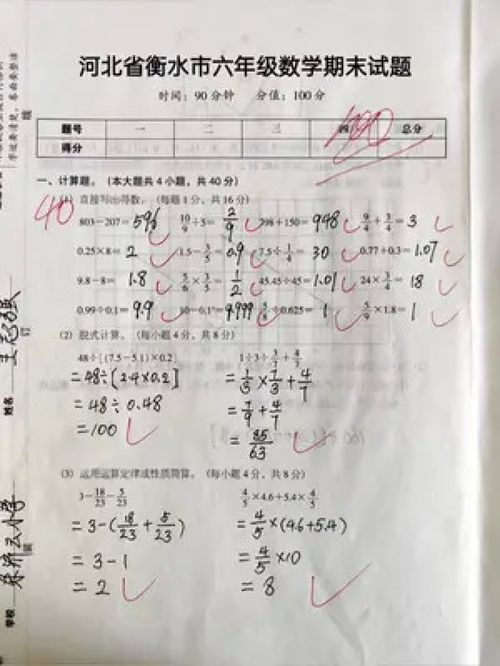 河北省衡水市六年级数学期末试题
时间：90分钟 分值：100分
题号 一 二 三 四 总分
得分
100
一、计算题。（本大题共4小题，共40分）
40
(1) 直接写出得数。（每题1分，共16分）
803−207= 596 10/9÷5= 2/9 798+150= 948 9/4+3/4= 3
0.25×8= 2 1.5−3/5= 0.9 7.5÷1/4= 30 0.77+0.3= 1.07
9.8−8= 1.8 5/6×3/5= 1/2 45.45÷45= 1.01 24×3/4= 18
0.99÷0.1= 9.9 10−0.1³= 9.999 5/8÷0.625= 1 5/9×1.8= 1
(2) 脱式计算。（每小题4分，共8分）
48÷[(7.5−5.1)×0.2] 1÷3÷3/7+4/7
=48÷[2.4×0.2] =1/3×7/3+4/7
=48÷0.48 =7/9+4/7
=100 =85/63
(3) 运用运算定律或性质简算。（每小题4分，共8分）
3−18/23−5/23 4/5×4.6+5.4×4/5
=3−(18/23+5/23) =4/5×(4.6+5.4)
=3−1 =4/5×10
=2 =8
姓名
学校